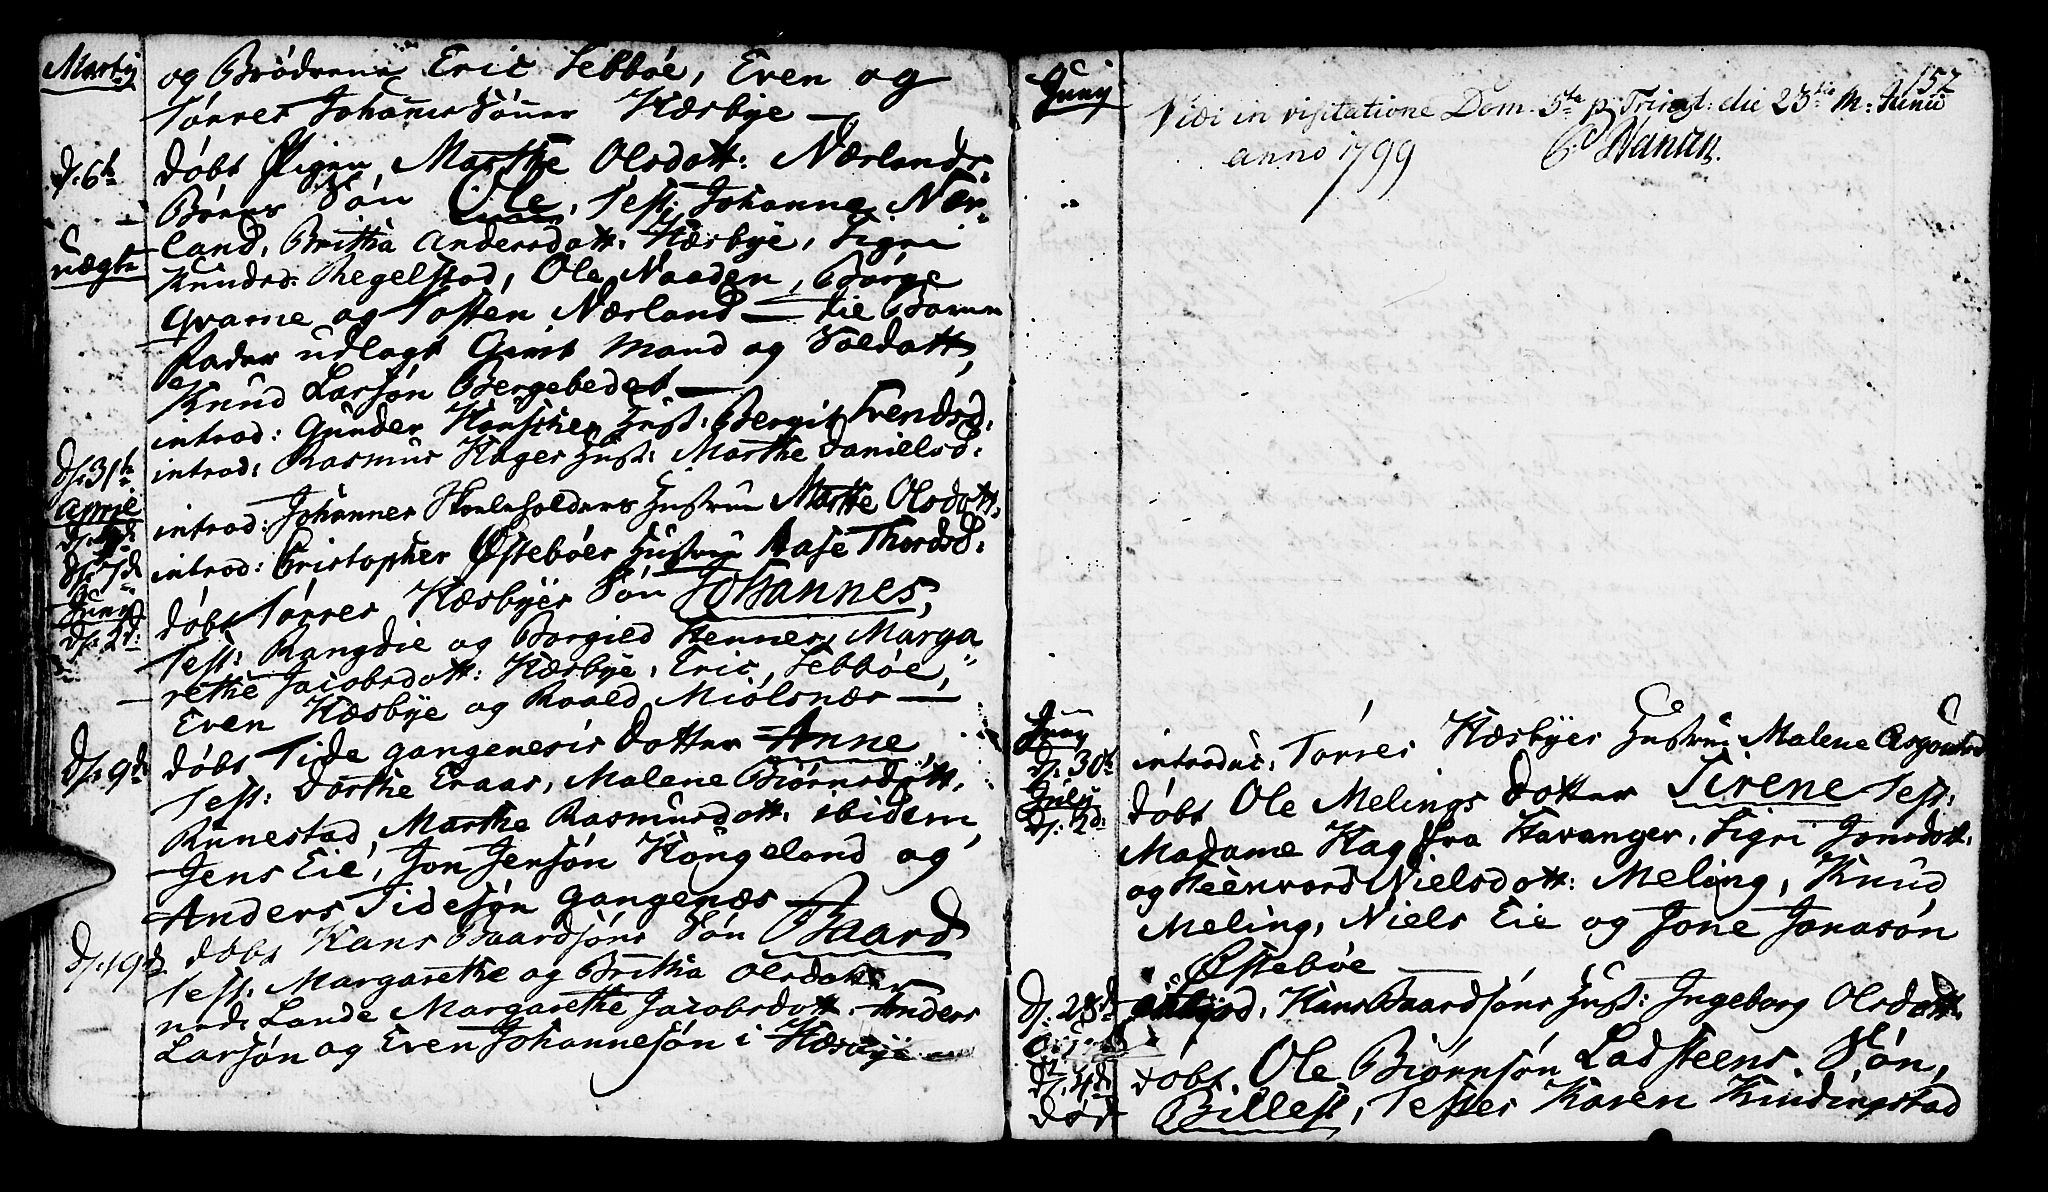 Martij
og Brødrene Eric Sebbøe, Even og
Tørres Johannes Sønner Hæsbye —
d. 6te døbt Pigen, Marthe Olsdott: Nærlands
Børns Søn Ole, Test: Johanne Nær-
land, Britha Andersdott: Hæsbye, Sigri
uægte
Knudsd: Regelstad, Ole Naaden, Børge
Qvame og Tosten Nærland — til Barne
Fader udlagt Gift Mand og Soldatt,
Knud Larsøn Bergebedet —
introd: Gunder Hørschen Hust: Bergit Svendsd.
d. 31te introd: Rasmus Hages Hust: Marthe Danielsd:
April
introd: Johannes Skoleholders Hustrue Marthe Olsdott.
d. 7de introd: Cristopher Østebøes Hustrue Aase Thordsd:
Juny
d. 2d: døbt Tørres Hæsbyes Søn Johannes,
Test: Rangdie og Borgild Henner, Marga
rethe Jacobsdott: Hæsbye, Eric Sebbøe,
Even Hæsbye og Roald Miølsnæs —
d. 9de døbt Tide Gangenesis Dotter Anne,
Test: Dorthe Eraas, Malene Biørnsdott,
Runestad, Marthe Rasmusdott: ibidem,
Jens Eie, Jon Jensøn Høngeland og
Anders Tidesøn Gangenæs —
d. 19de døbt Hans Baardsøns Søn Baard
Test: Margarethe og Britha Olsdøtter
nedr Lande Margarethe Jacobsdott. Anders
Larsøn og Even Johannesøn i Hæsbye —
152
Juny
Vidi in visitatione Dom. 5te p. Trinit: die 23tio M: Junii
anno 1799
Juny
d. 30te introduc: Tørres Hæsbyes Hustrue Malene Asgoutsd
July
d. 2d: døbt Ole Melings Dotter Sirene Test:
Madame Hag fra Stavanger, Sigri Jonsdott.
og Steenvord Nielsdott: Meling, Knud
Meling, Niels Eie og Jone Jonasøn
Østebøe —
d. 28de introd, Hans Baardsøns Hust: Ingeborg Olsdott.
d. 4de døbt Ole Biørnsøn Ladsteens Søn,
Billest, Testes Karen Kindingstad